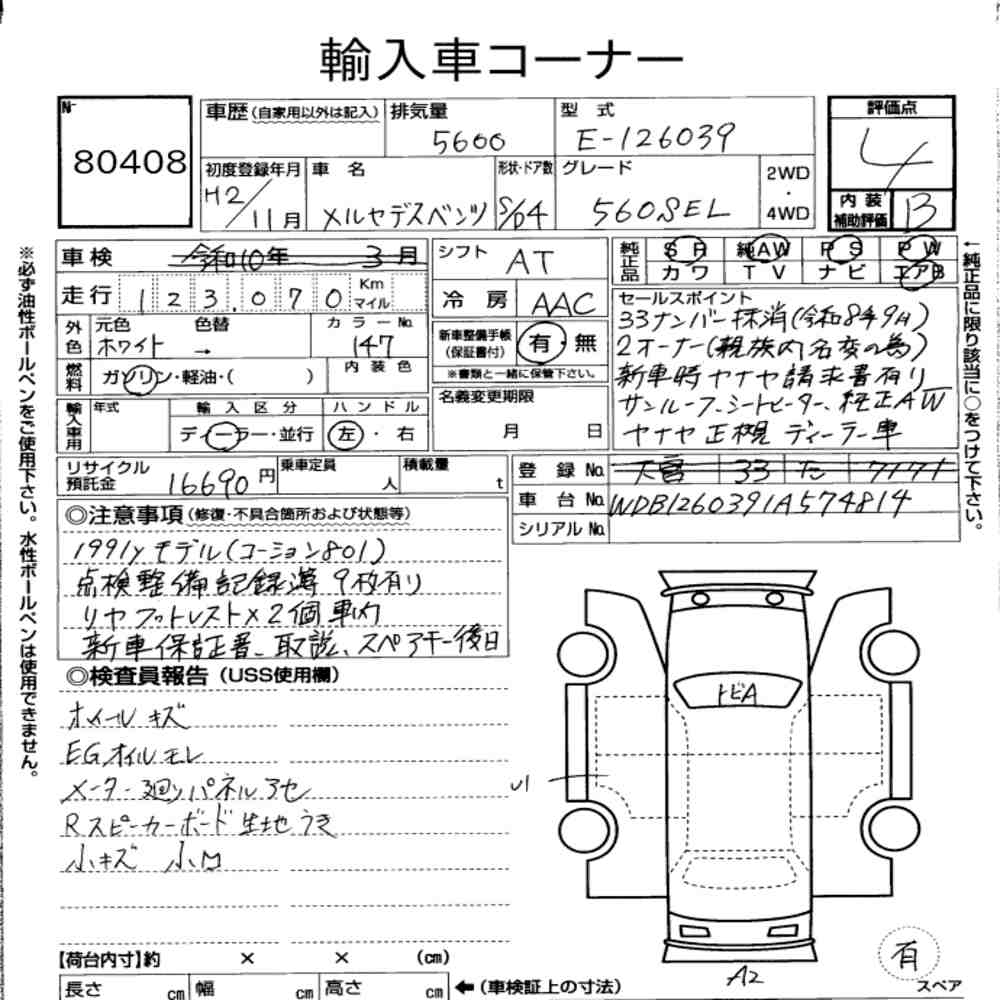 輸入車コーナー
No
80408
車歴(自家用以外は記入)
排気量
5600
型 式
E-126039
評価点
4
初度登録年月
H2/11月
車 名
メルセデスベンツ
形状・ドア数
S/D4
グレード
560SEL
2WD
・
4WD
内装
補助評価
B
※必ず油性ボールペンをご使用下さい。水性ボールペンは使用できません。
車検
令和10年 3月
走行
123,070
Km
マイル
外色
元色
色替
カラーNo.
ホワイト →
147
燃料
ガソリン・軽油・( )
内装色
輸入車用
年式
輸入区分
ハンドル
ディーラー・並行
左・右
シフト
AT
冷房
AAC
新車整備手帳
(保証書付)
有・無
※書類と一緒に保管下さい。
名義変更期限
月 日
純正品
SR 純AW PS PW
カワ TV ナビ エアB
←純正品に限り該当に○をつけて下さい。
セールスポイント
33ナンバー抹消(令和8年9月)
2オーナー(親族内名変の為)
新車時ヤナセ請求書有り
サンルーフ、シートヒーター、純正AW
ヤナセ正規ディーラー車
リサイクル
預託金
16690円
乗車定員
人
積載量
t
登録No.
大宮 33 た 7171
車台No.
WDB1260391A574814
シリアルNo.
◎注意事項(修復・不具合箇所および状態等)
1991yモデル(コーション801)
点検整備記録簿9枚有り
リヤフットレスト×2個車内
新車保証書、取説、スペアキー後日
◎検査員報告(USS使用欄)
ホイールキズ
EGオイルモレ
メーター廻リパネルアセ
Rスピーカーボード生地うき
小キズ 小凹
トビA
U1
A2
有
スペア
【荷台内寸】約 × × (cm)
長さ cm 幅 cm 高さ cm ←(車検証上の寸法)